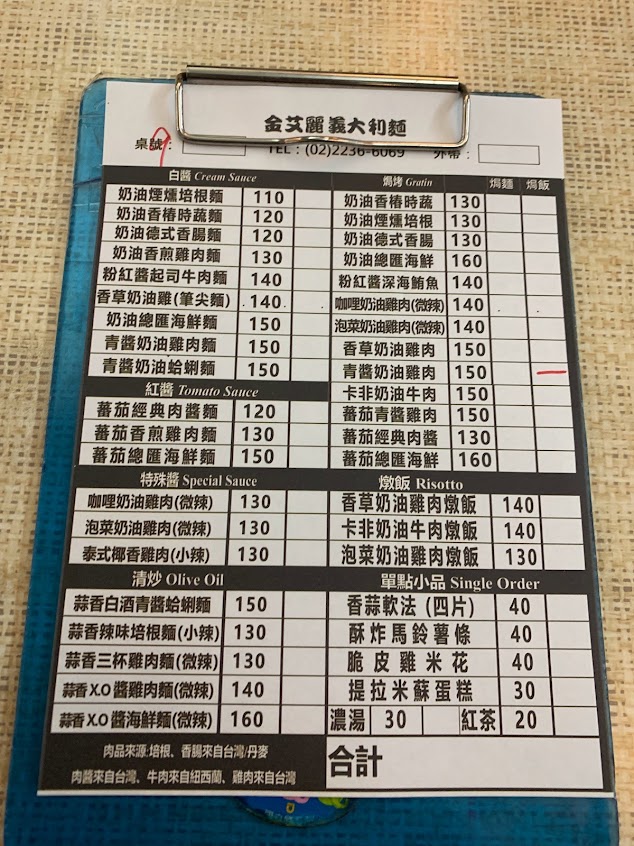 金艾麗義大利麵
桌號:
TEL : (02)2236-6069 外帶:
白醬 Cream Sauce
奶油煙燻培根麵 110
奶油香椿時蔬麵 120
奶油德式香腸麵 120
奶油香煎雞肉麵 130
粉紅醬起司牛肉麵 140
香草奶油雞(筆尖麵) 140
奶油總匯海鮮麵 150
青醬奶油雞肉麵 150
青醬奶油蛤蜊麵 150
紅醬 Tomato Sauce
蕃茄經典肉醬麵 120
蕃茄香煎雞肉麵 130
蕃茄總匯海鮮麵 150
特殊醬 Special Sauce
咖哩奶油雞肉(微辣) 130
泡菜奶油雞肉(微辣) 130
泰式椰香雞肉(小辣) 130
清炒 Olive Oil
蒜香白酒青醬蛤蜊麵 150
蒜香辣味培根麵(小辣) 130
蒜香三杯雞肉麵(微辣) 130
蒜香X.O醬雞肉麵(微辣) 140
蒜香X.O醬海鮮麵(微辣) 160
肉品來源:培根、香腸來自台灣/丹麥
肉醬來自台灣、牛肉來自紐西蘭、雞肉來自台灣
焗烤 Gratin 焗麵 焗飯
奶油香椿時蔬 130
奶油煙燻培根 130
奶油德式香腸 130
奶油總匯海鮮 160
粉紅醬深海鮪魚 140
咖哩奶油雞肉(微辣) 140
泡菜奶油雞肉(微辣) 140
香草奶油雞肉 150
青醬奶油雞肉 150
卡非奶油牛肉 150
蕃茄青醬雞肉 150
蕃茄經典肉醬 130
蕃茄總匯海鮮 160
燉飯 Risotto
香草奶油雞肉燉飯 140
卡非奶油牛肉燉飯 140
泡菜奶油雞肉燉飯 130
單點小品 Single Order
香蒜軟法 (四片) 40
酥炸馬鈴薯條 40
脆皮雞米花 40
提拉米蘇蛋糕 30
濃湯 30 紅茶 20
合計